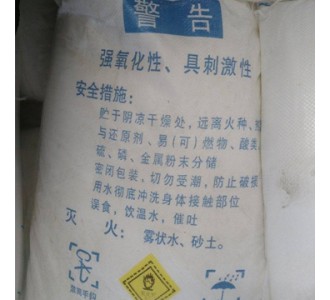 警告
强氧化性、具刺激性
安全措施：
贮于阴凉干燥处，远离火种、
与还原剂、易(可)燃物、酸类
硫、磷、金属粉末分储
密闭包装，切勿受潮，防止破损
用水彻底冲洗身体接触部位
误食，饮温水，催吐
灭 火：雾状水、砂土。